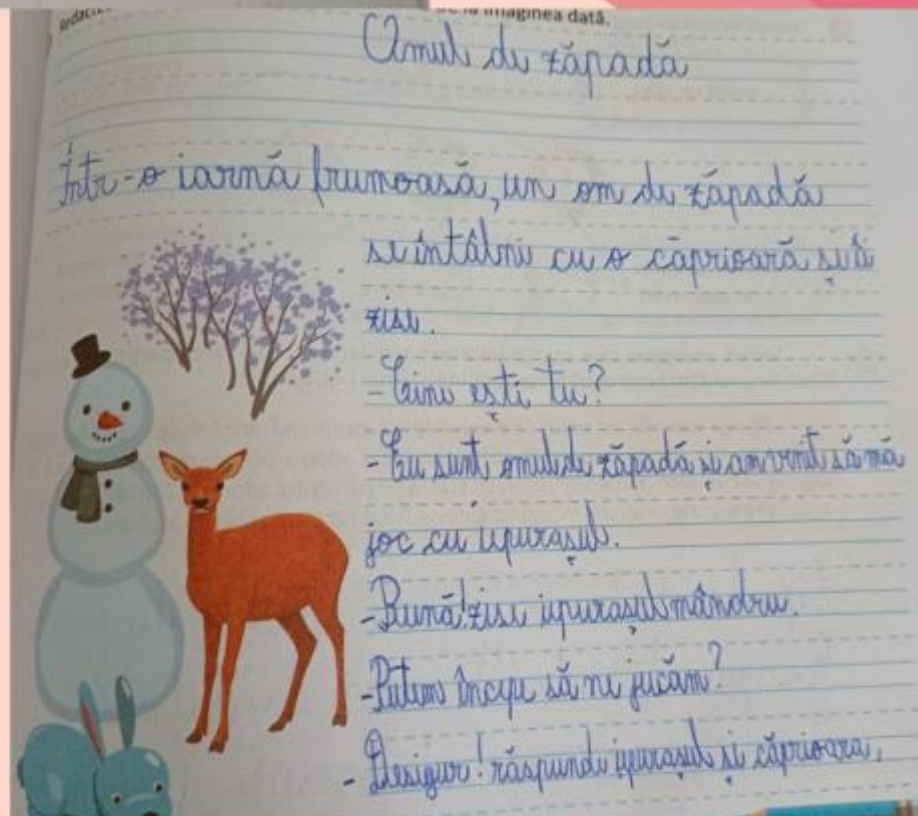 de la imaginea dată.
Omul de zăpadă
Într-o iarnă frumoasă, un om de zăpadă
se întâlni cu o căprioară și îi
zise.
-Cine ești tu?
-Eu sunt omul de zăpadă și am venit să mă
joc cu iepurașul.
-Bună! zise iepurașul mândru.
-Putem începe să ne jucăm?
- Desigur! răspunde iepurașul și căprioara.